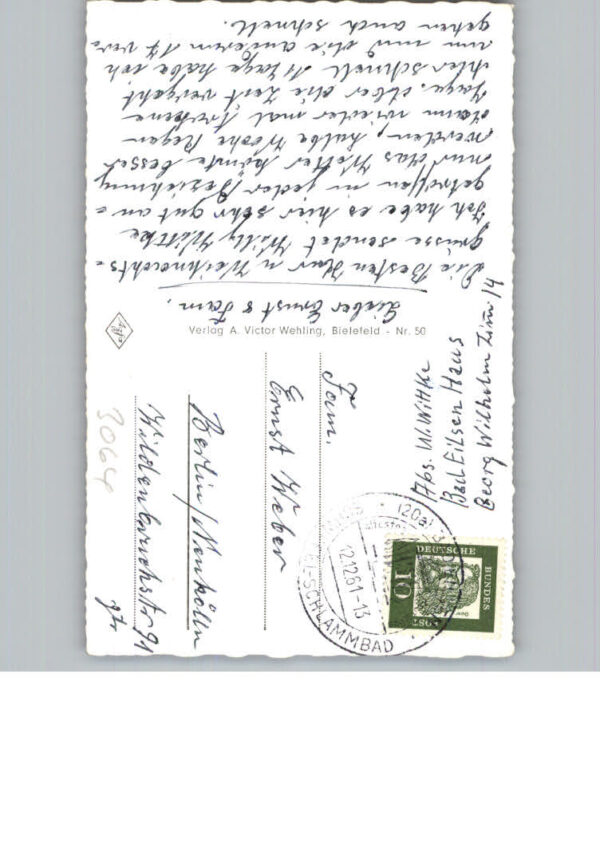 Lieber Ernst & Fam.
Die Besten Kur u Weihnachts=
grüsse sendet Willy Wittke
Ich habe es hier sehr gut an=
getroffen in jeder Beziehung
nur das Wetter könnte besser
werden, halbe Woche Regen
dann wieder mal trockene
Tage. Aber die Zeit vergeht
hier schnell 11 Tage habe ich
um und die anderen 17 ver=
gehen auch schnell.
Verlag A. Victor Wehling, Bielefeld - Nr. 50
Agfa
Abs. W. Wittke
Bad Eilsen Haus
Georg Wilhelm Zim. 14
Fam.
Ernst Weber
Berlin/Neukölln
Wildenbruchstr 91
3064
(120a)
12.12.61-13
SCHLAMMBAD
DEUTSCHE
BUNDES
POST
10